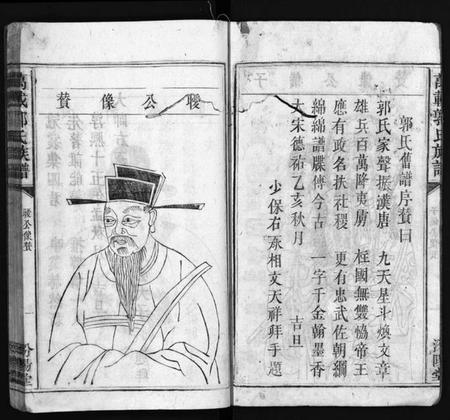 萬載郭氏族譜
郭氏舊譜序贊曰
郭氏家聲振漢唐 九天星斗煥文章
雄兵百萬降夷虜 國無雙恊帝王
應有政名扶社稷 更有忠武佐朝綱
綿綿譜牒傳今古 一字千金翰墨香
大宋德祐乙亥秋月 吉旦
少保右丞相文天祥拜手題
公像贊
萬載郭氏族譜
公像贊
汾陽堂